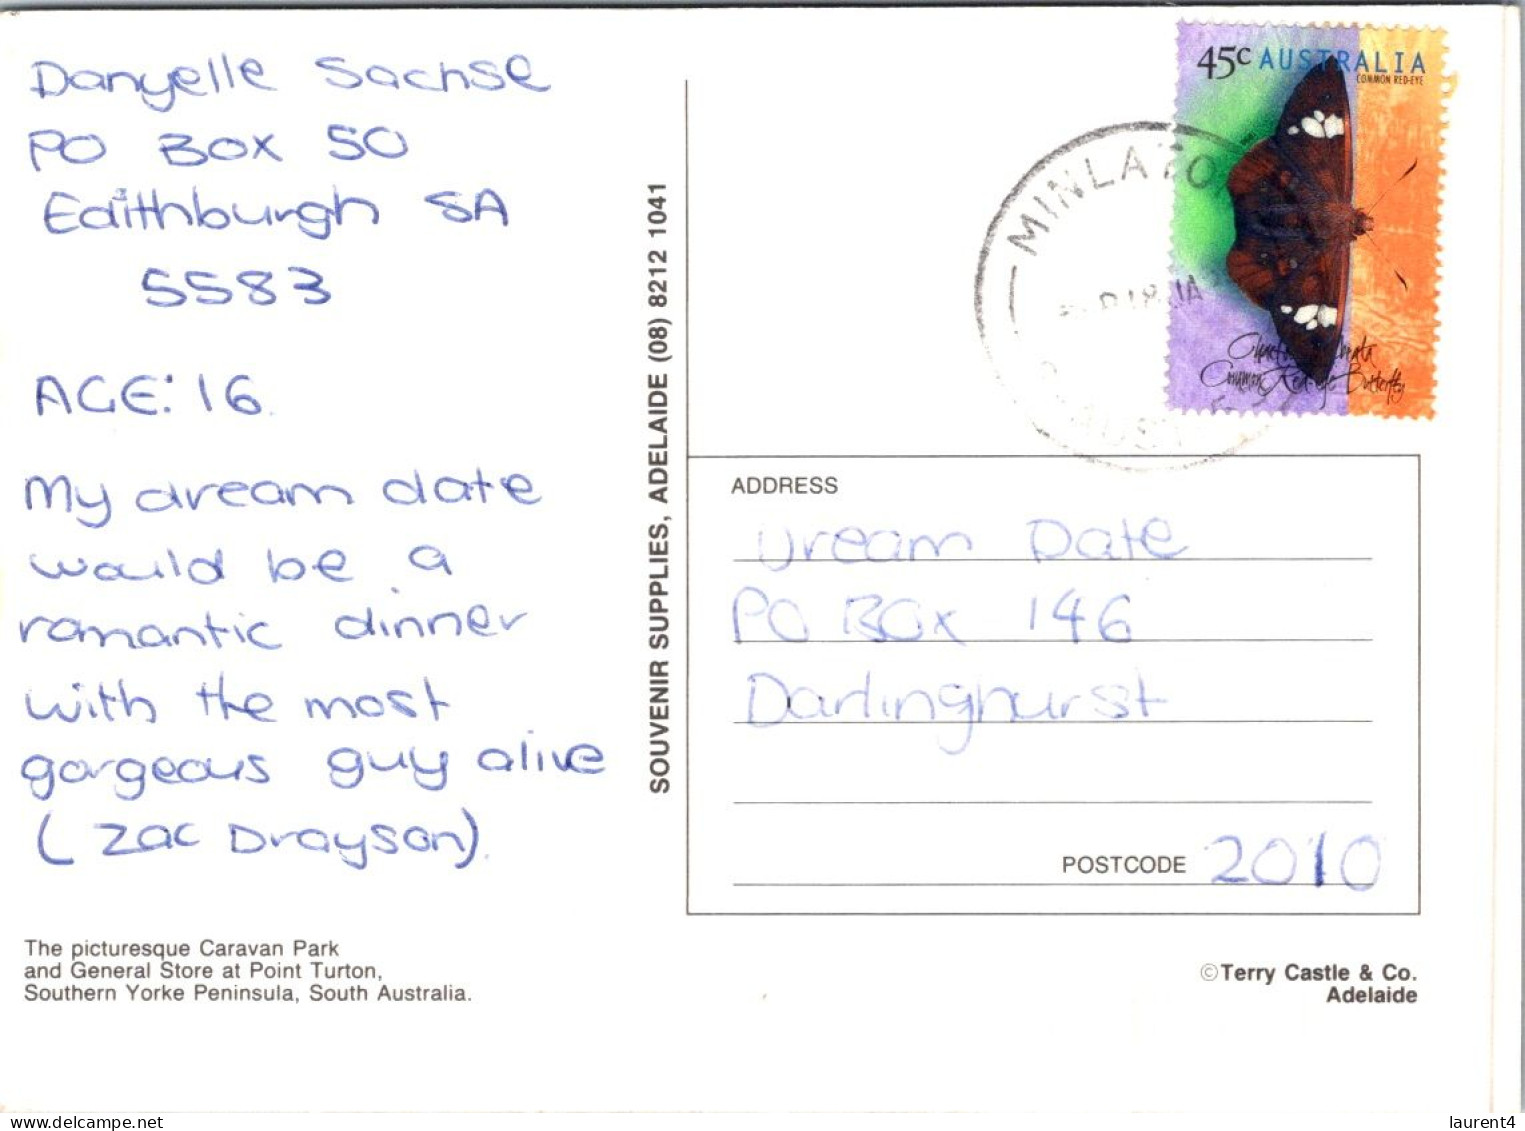 Danyelle Sachse
PO Box 50
Edithburgh SA
5583
AGE: 16.
My dream date
would be a
romantic dinner
with the most
gorgeous guy alive
(Zac Drayson).
The picturesque Caravan Park
and General Store at Point Turton,
Southern Yorke Peninsula, South Australia.
SOUVENIR SUPPLIES, ADELAIDE (08) 8212 1041
45c AUSTRALIA
COMMON RED-EYE
Common Red-eye Butterfly
MINLATO
ADDRESS
Dream Date
PO Box 146
Darlinghurst
POSTCODE 2010
©Terry Castle & Co.
Adelaide
laurent4